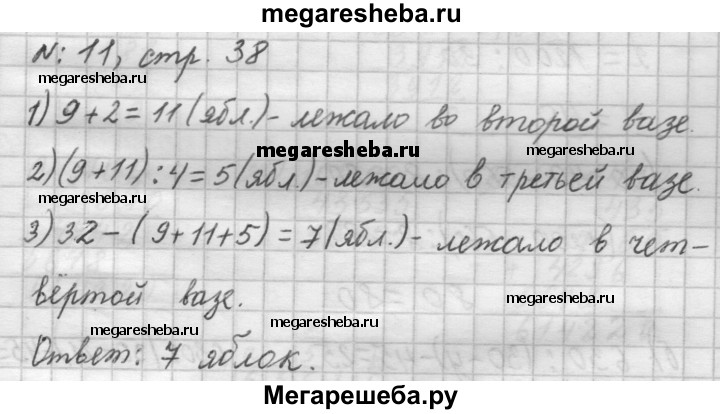 megaresheba.ru
N: 11, стр. 38
megaresheba.ru megaresheba.ru
1) 9+2=11 (ябл.) - лежало во второй вазе.
megaresheba.ru megaresheba.ru
2) (9+11):4=5 (ябл.) - лежало в третьей вазе.
megaresheba.ru
3) 32-(9+11+5)=7 (ябл.) - лежало в чет-
вёртой вазе.
megaresheba.ru
megaresheba.ru megaresheba.ru
Ответ: 7 яблок.
Мегарешеба.ру